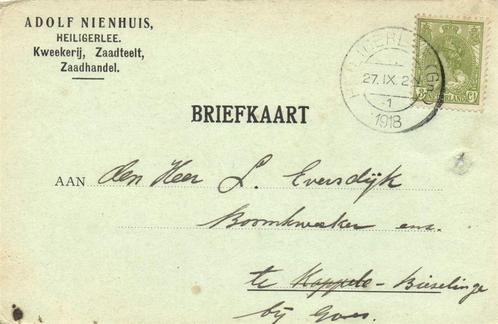 ADOLF NIENHUIS,
HEILIGERLEE.
Kweekerij, Zaadteelt,
Zaadhandel.
HEILIGERLEE (GR.)
27. IX. 2-N
-1
1918
BRIEFKAART
AAN den Heer L. Eversdijk
Boomkweeker enz.
te Kappele-Bieselinge
bij Goes.